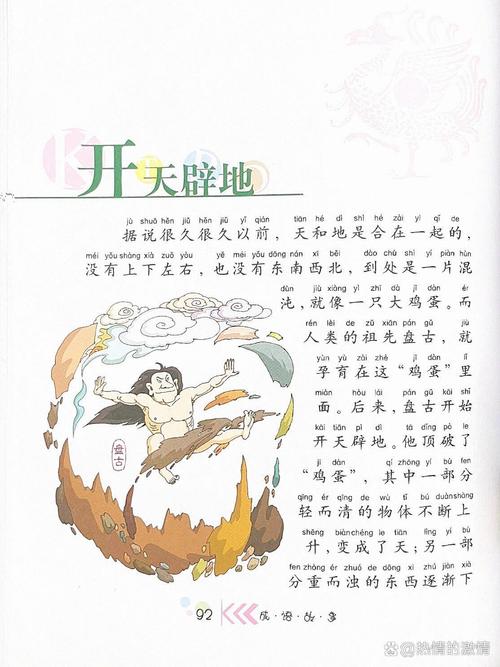 开天辟地
jù shuō hěn jiǔ hěn jiǔ yǐ qián tiān hé dì shì hé zài yì qǐ de
据说很久很久以前，天和地是合在一起的，
méi yǒu shàng xià zuǒ yòu yě méi yǒu dōng nán xī běi dào chù shì yí piàn hùn
没有上下左右，也没有东南西北，到处是一片混
dùn jiù xiàng yì zhī dà jī dàn ér
沌，就像一只大鸡蛋。而
rén lèi de zǔ xiān pán gǔ jiù
人类的祖先盘古，就
yùn yù zài zhè jī dàn lǐ
孕育在这“鸡蛋”里
miàn hòu lái pán gǔ kāi shǐ
面。后来，盘古开始
kāi tiān pì dì tā dǐng pò le
开天辟地。他顶破了
jī dàn qí zhōng yí bù fen
“鸡蛋”，其中一部分
qīng ér qīng de wù tǐ bú duàn shàng
轻而清的物体不断上
shēng biàn chéng le tiān lìng yí bù
升，变成了天；另一部
fen zhòng ér zhuó de dōng xi zhú jiàn xià
分重而浊的东西逐渐下
盘古
92
成·语·故·事
@热情的激情